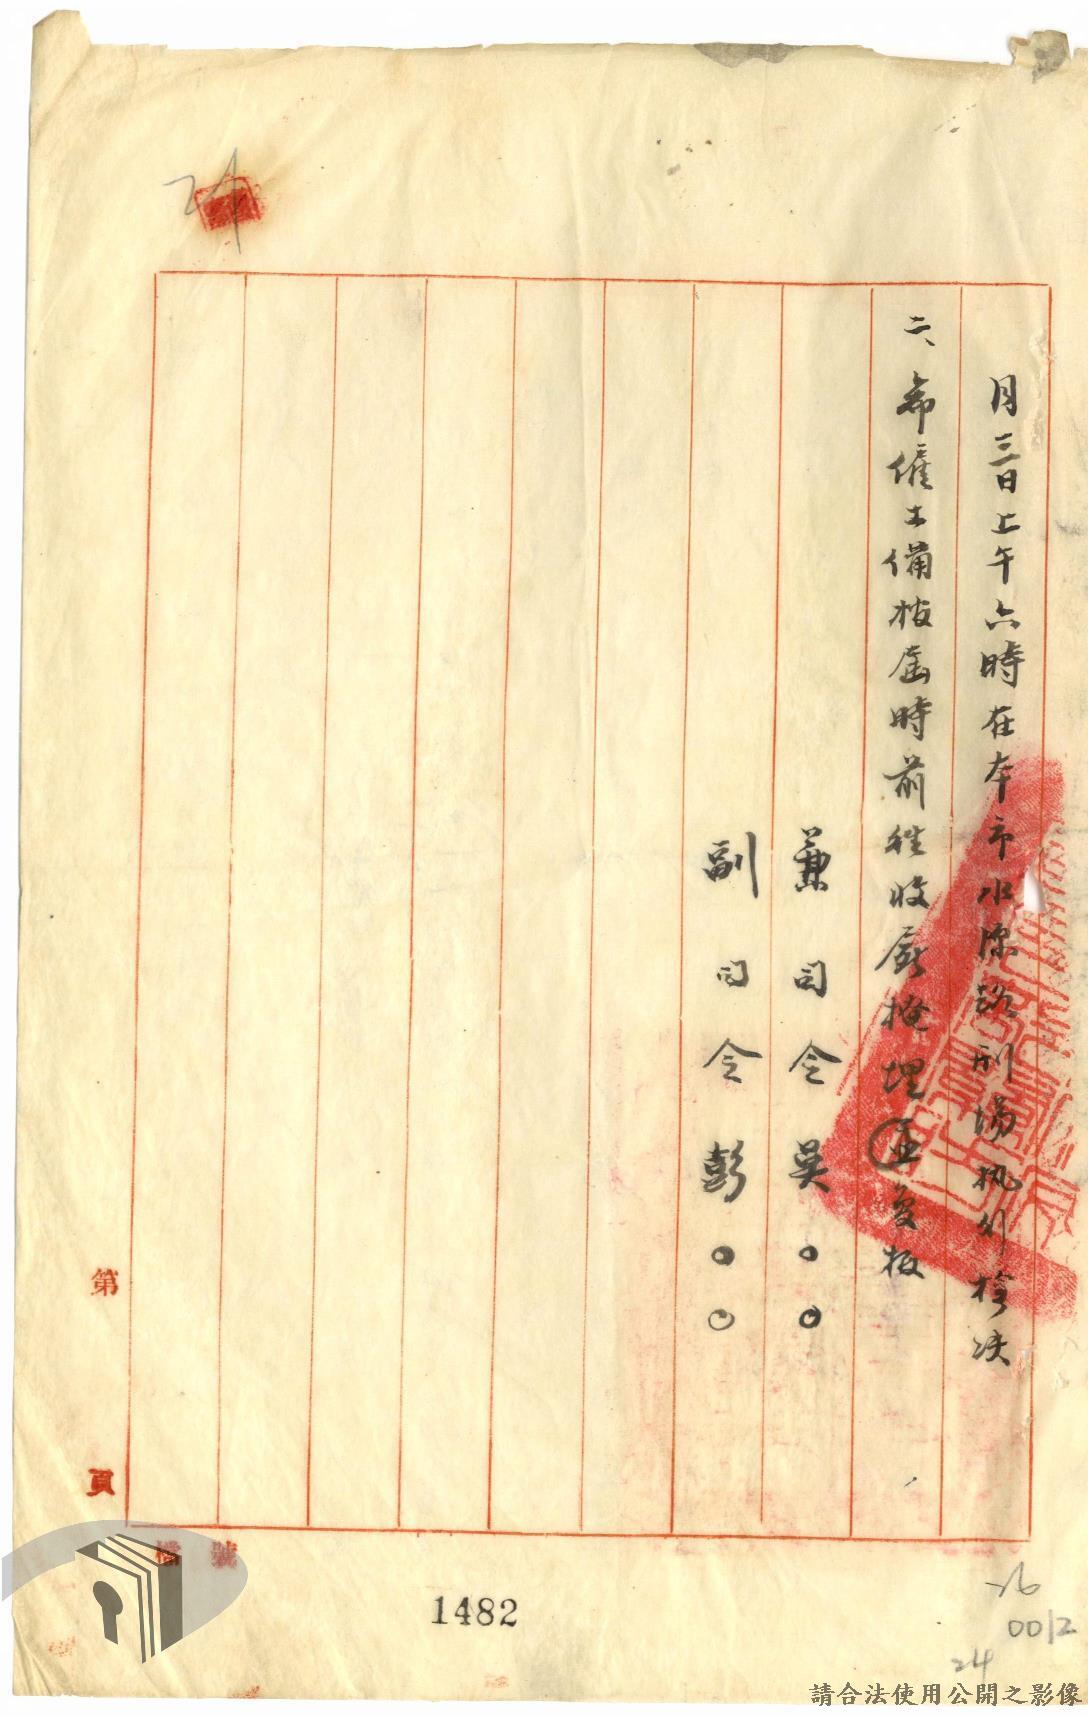 月三日上午六時在本市水源路刑場执行槍决
二、希僱工備板屆時前往收屍掩埋並免收
兼司令吳○○
副司令彭○○
第 頁
檔 號
1482
24
26
0012
24
請合法使用公開之影像